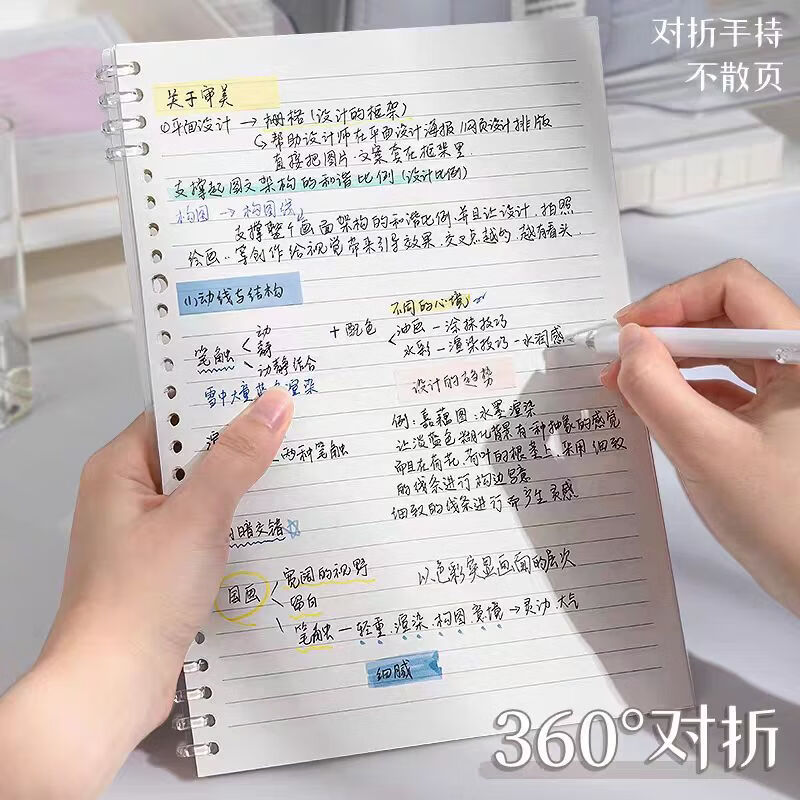 对折手持
不散页
关于审美
①平面设计 → 栅格(设计的框架)
帮助设计师在平面设计海报 网页设计排版
直接把图片·文案套在框架里.
支撑起图文架构的和谐比例(设计比例)
构图 → 构图
支撑整个画面架构的和谐比例.并且让设计.拍照
绘画..等创作给视觉带来引导效果 交叉点越多.越有看头.
(1)动线与结构
不同的心境
动
+配色
油画 — 涂抹技巧
笔触
静
水彩 — 渲染技巧 — 水润感
动静结合
设计的趋势
雪中大量蓝色渲染
例:嘉藕图:水墨渲染
让淡蓝色 背景有种抽象的感觉
两种笔触
而且在有花.荷叶的根茎上 采用细致
的线条进行构边写意
细致的线条进行 产生灵感
暗交错☆
宽阔的视野
以色彩突显画面的层次
国画
留白
笔触 — 轻重.渲染.构图.意境 → 灵动.大气
细腻
360°对折